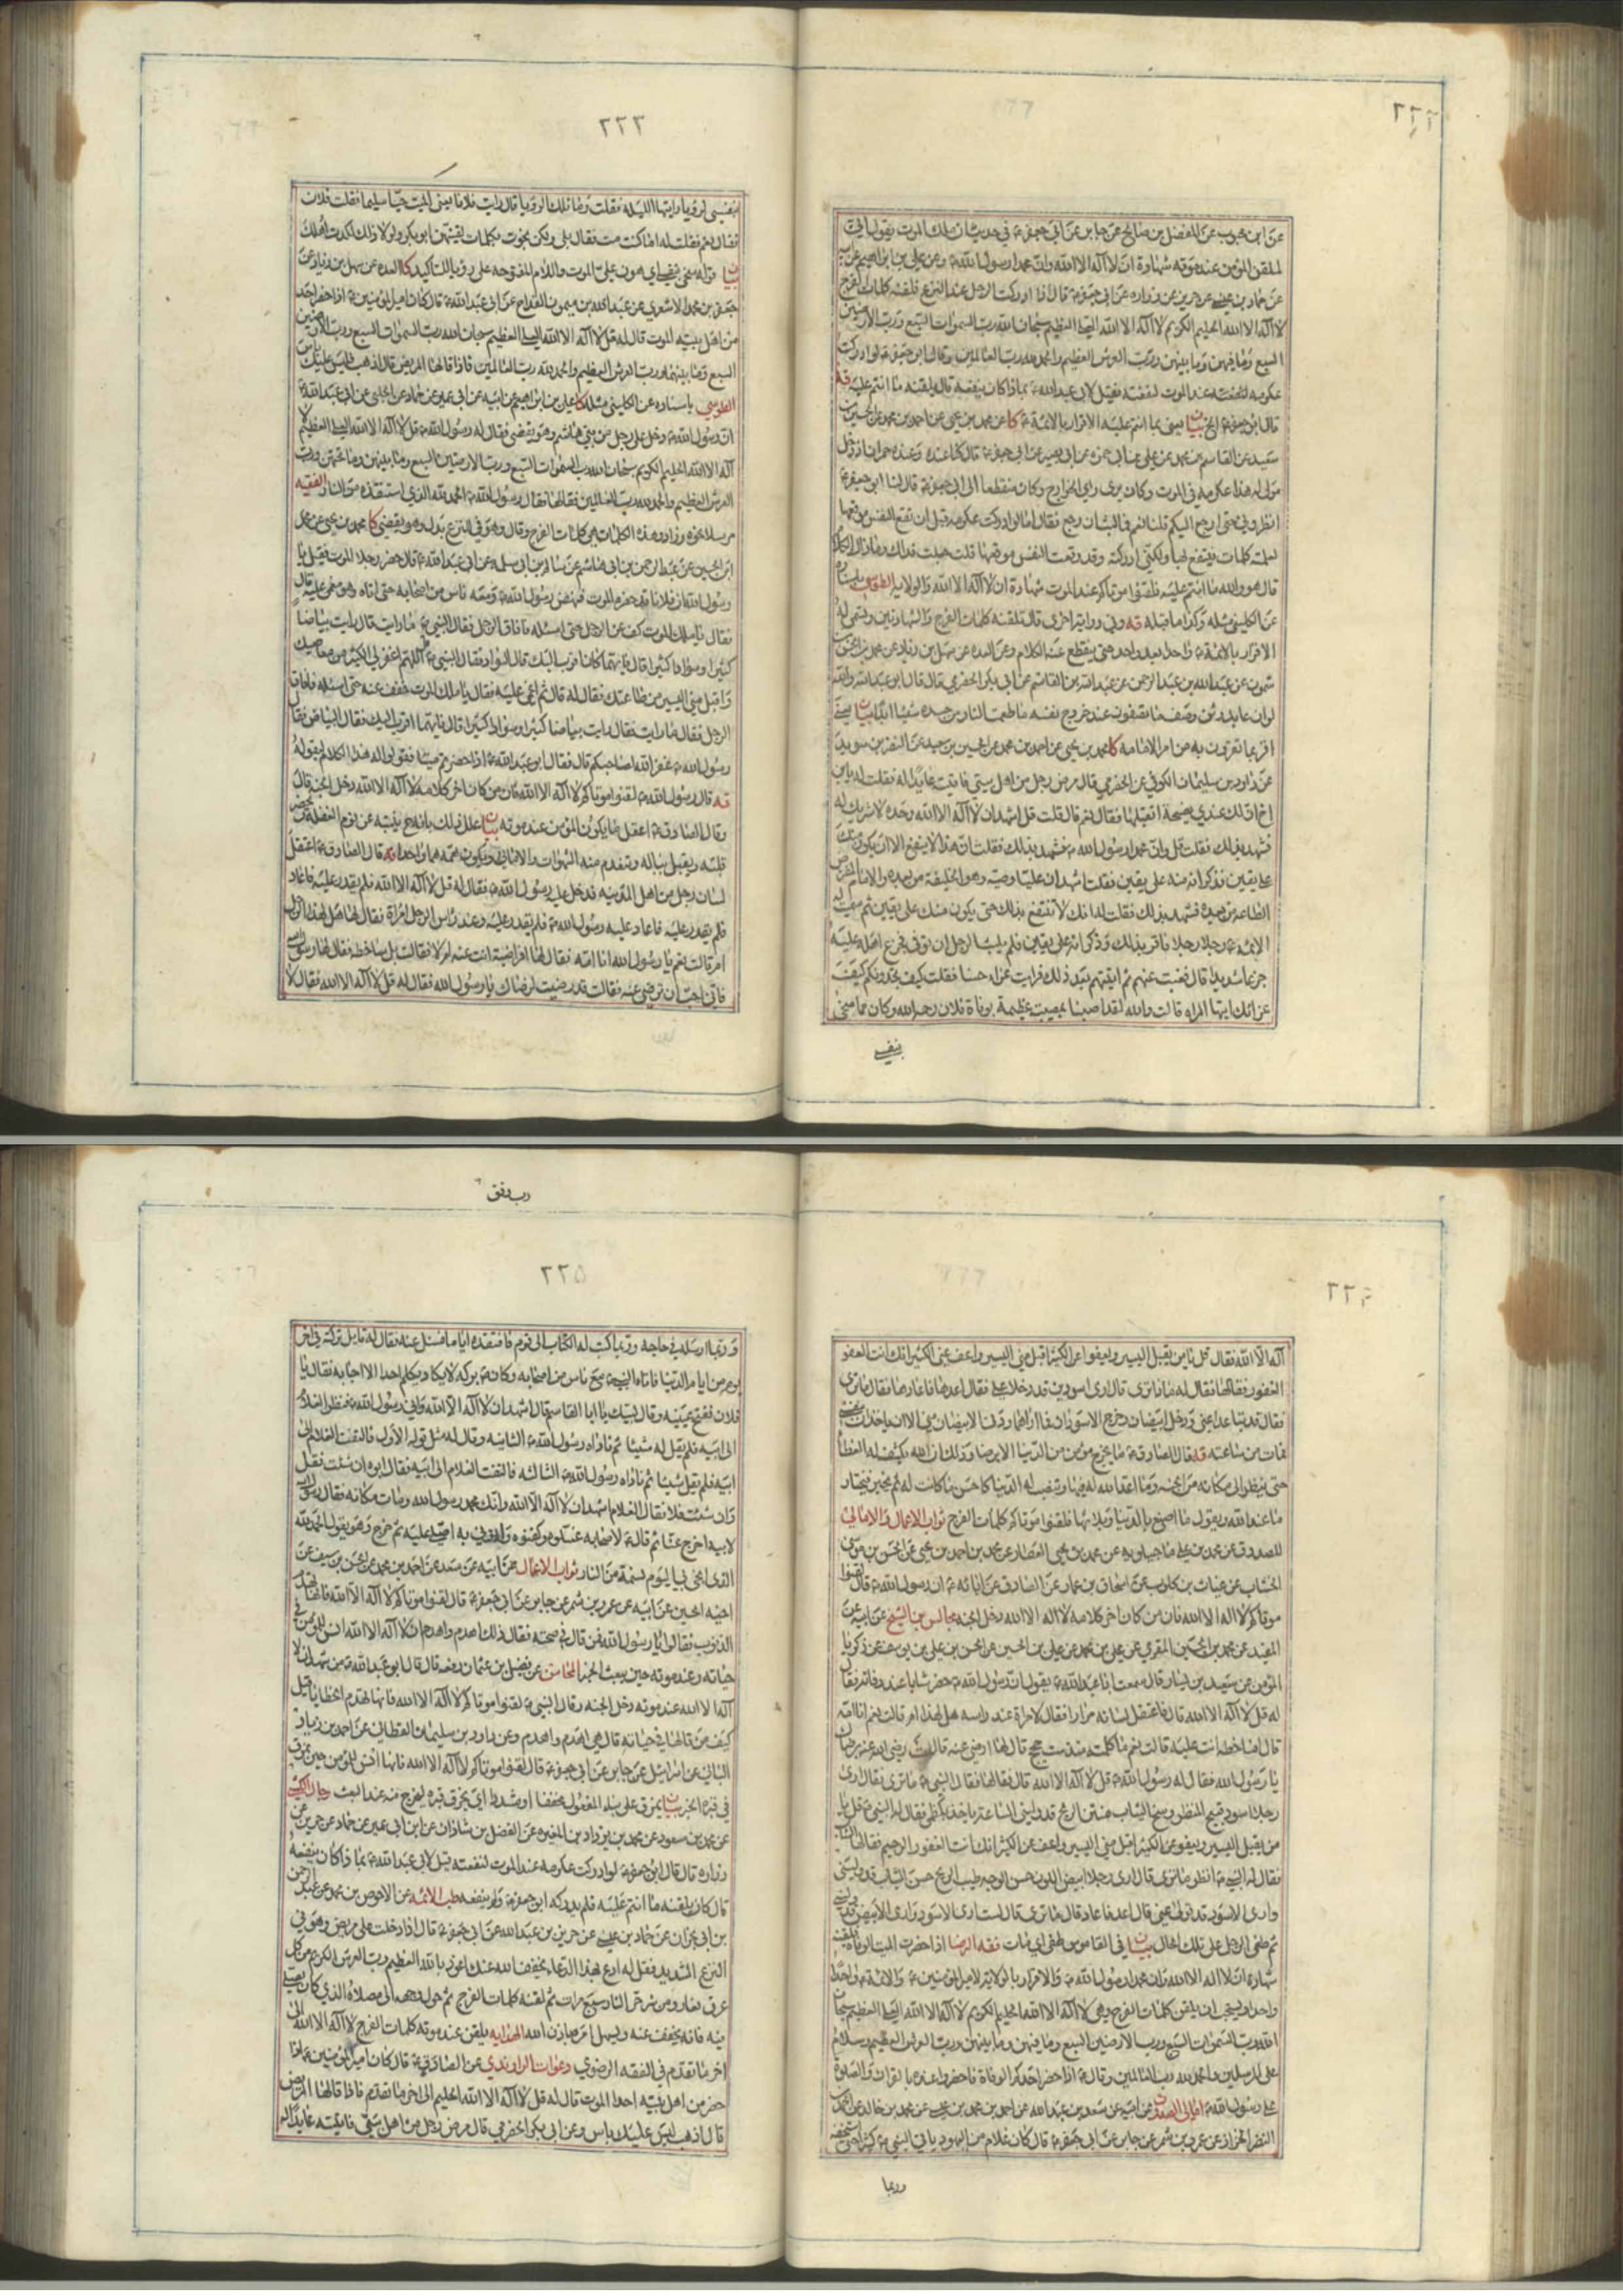 ٢٢٢
عن ابن محبوب عن المفضل بن صالح عن جابر عن ابي جعفر ع في حديث ان ملك الموت يقول اني
لملقن المؤمن عند موته شهادة ان لا اله الا الله وان محمدا رسول الله ص وعن علي بن ابراهيم عن ابيه
عن حماد بن عيسى عن حريز عن زراره عن ابي جعفر ع قال اذا ادركت الرجل عند النزع فلقنه كلمات الفرج
لا اله الا الله الحليم الكريم لا اله الا الله العلي العظيم سبحان الله رب السموات السبع ورب الارضين
السبع وما فيهن وما بينهن ورب العرش العظيم والحمد لله رب العالمين وقال ابو جعفر ع لو ادركت
عكرمه عند الموت لنفعته فقيل لابي عبد الله ع بماذا كان ينفعه قال يلقنه ما انتم عليه
قال ابو جعفر ع الخ بيان يعني بما انتم عليه الاقرار بالائمة ع كا عن محمد بن يحيى عن احمد بن محمد عن الحسين بن
سعيد عن القاسم بن محمد عن علي عن ابي بصير عن ابي جعفر ع قال كنا عنده وعنده حمران اذ دخل
مولى له هذا عكرمه في الموت وكان يرى راي الخوارج وكان منقطعا الى ابي جعفر ع قال لنا ابو جعفر ع
انظروني حتى ارجع اليكم قلنا نعم فما لبث ان رجع فقال اما لو ادركت عكرمه قبل ان تقع النفس موقعها
لعلمته كلمات ينتفع بها ولكني ادركته وقد وقعت النفس موقعها قلت جعلت فداك وما ذاك الكلام
قال هو والله ما انتم عليه فلقنوا موتاكم عند الموت شهادة ان لا اله الا الله والولايه الطوسي باسناده
عن الكليني مثله وكذا ما قبله قه وفي رواية اخرى قال تلقنه كلمات الفرج والشهادتين وتسمي له
الاقرار بالائمة ع واحدا بعد واحد حتى ينقطع عنه الكلام وعن العده عن سهل بن زياد عن محمد بن الحسن بن
شمون عن عبد الله بن عبد الرحمن عن عبد الله بن القاسم عن ابي بكر الحضرمي قال قال ابو عبد الله ع والله
لو ان عابد وثن وصف ما تصفون عند خروج نفسه ما طعمت النار من جسده شيئا ابدا بيان يعني
اقر بما تقرون به من امر الامامه كا محمد بن يحيى عن احمد بن محمد عن الحسين بن سعيد عن النضر بن سويد
عن داود بن سليمان الكوفي عن الحضرمي قال مرض رجل من اهل بيتي فاتيته عايدا له فقلت له يابن
اخ ان لك عندي نصيحة اتقبلها فقال نعم فقلت قل اشهد ان لا اله الا الله وحده لا شريك له
فشهد بذلك فقلت قل وان محمدا رسول الله ص فشهد بذلك فقلت ان هذا لا ينتفع الا ان يكون منك
على يقين فذكر انه منه على يقين فقلت اشهد ان عليا وصيه وهو الخليفة من بعده والامام المفترض
الطاعه من بعده فشهد بذلك فقلت له انك لا تنتفع بذلك حتى يكون منك على يقين ثم سميت له
الائمه ع رجلا رجلا فاقر بذلك وذكر انه على يقين فلم يلبث الرجل ان توفي فجزع اهله عليه
جزعا شديدا قال فغبت عنهم ثم اتيتهم بعد ذلك فرايت عزاء حسنا فقلت كيف تجدونكم كيف
عزائك ايتها المراه قالت والله لقد اصبنا بمصيبة عظيمة بوفاة فلان رحمه الله وكان مما سخى
بنفسي
٢٢٣
بنفسي لرؤيا رايتها الليله فقلت وما تلك الرؤيا قال رايت فلانا يعني الميت حيا سليما فقلت فلان
فقال نعم فقلت له اما كنت مت فقال بلى ولكن نجوت بكلمات لقنيهن ابو بكر ولولا ذلك لكدت اهلك
جعفر بن محمد الاشعري عن عبد الله بن ميمون القداح عن ابي عبد الله ع قال كان امير المؤمنين ع اذا حضر احد
من اهل بيته الموت قال له قل لا اله الا الله العلي العظيم سبحان الله رب السموات السبع ورب الارضين
السبع وما بينهما ورب العرش العظيم والحمد لله رب العالمين فاذا قالها المريض قال اذهب فليس عليك باس
الطوسي باسناده عن الكليني مثله كا علي بن ابراهيم عن ابيه عن ابن ابي عمير عن حماد عن الحلبي عن ابي عبد الله ع
ان رسول الله ص دخل على رجل من بني هاشم وهو يقضي فقال له رسول الله ص قل لا اله الا الله العلي العظيم لا
اله الا الله الحليم الكريم سبحان الله رب السموات السبع ورب الارضين السبع وما بينهن وما تحتهن ورب
العرش العظيم والحمد لله رب العالمين فقالها فقال رسول الله ص الحمد لله الذي استنقذه من النار الفقيه
مرسلا نحوه وزاد وهذه الكلمات هي كلمات الفرج وقال وهو في النزع بدل وهو يقضي كا محمد بن يحيى عن محمد
ابن الحسين عن عبد الرحمن بن ابي هاشم عن سالم بن ابي سلمه عن ابي عبد الله ع قال حضر رجلا الموت فقيل يا
رسول الله ان فلانا قد حضره الموت فنهض رسول الله ص ومعه ناس من اصحابه حتى اتاه وهو مغمى عليه قال
فقال يا ملك الموت كف عن الرجل حتى اسئله فافاق الرجل فقال النبي ص ما رايت قال رايت بياضا
كثيرا وسوادا كثيرا قال فايهما كان اقرب اليك قال السواد فقال النبي ص قل اللهم اغفر لي الكثير من معاصيك
واقبل مني اليسير من طاعتك فقال له قال ثم اغمي عليه فقال يا ملك الموت خفف عنه حتى اسئله فافاق
الرجل فقال ما رايت فقال رايت بياضا كثيرا وسوادا كثيرا قال فايهما اقرب اليك فقال البياض فقال
رسول الله ص غفر الله لصاحبكم قال فقال ابو عبد الله ع اذا حضرتم ميتا فقولوا له هذا الكلام ليقوله
قه قال رسول الله ص لقنوا موتاكم لا اله الا الله فان من كان اخر كلامه لا اله الا الله دخل الجنه قال
وقال الصادق ع اعقل ما يكون المؤمن عند موته بيان
قه قال الصادق ع اعتقل
لسان رجل من اهل المدينه فدخل عليه رسول الله ص فقال له قل لا اله الا الله فلم يقدر عليه فاعاد
فلم يقدر عليه فاعاد عليه رسول الله ص فلم يقدر عليه وعند راس الرجل امراة فقال لها هل لهذا الرجل
ام قالت نعم يا رسول الله انا امه فقال لها افراضية انت عنه ام لا فقالت بل ساخط فقال لها رسول الله
فاني احب ان ترضي عنه فقالت قد رضيت لرضاك يا رسول الله فقال له قل لا اله الا الله فقال لا
٢٢٤
اله الا الله فقال قل يا من يقبل اليسير ويعفو عن الكثير اقبل مني اليسير واعف عني الكثير انك انت العفو
الغفور فقالها فقال له ماذا ترى قال ارى اسودين قد دخلا علي فقال اعدها فاعادها فقال ما ترى
فقال قد تباعدا عني ودخل ابيضان وخرج الاسودان فما اراهما ودنا الابيضان مني الان ياخذان بنفسي
فمات من ساعته قه قال الصادق ع ما يخرج مؤمن من الدنيا الا برضا وذلك ان الله يكشف له الغطا
حتى ينظر الى مكانه من الجنه وما اعد الله له فيها وتنصب له الدنيا كاحسن ما كانت له ثم يخير فيختار
ما عند الله ويقول ما اصنع بالدنيا وبلائها فلقنوا موتاكم كلمات الفرج ثواب الاعمال والامالي
للصدوق عن محمد بن علي ماجيلويه عن محمد بن يحيى العطار عن محمد بن احمد بن يحيى عن الحسن بن موسى
الخشاب عن غياث بن كلوب عن اسحاق بن عمار عن الصادق عن ابائه ع ان رسول الله ص قال لقنوا
موتاكم لا اله الا الله فان من كان اخر كلامه لا اله الا الله دخل الجنه مجالس بن الشيخ عن ابيه عن
المفيد عن محمد بن الحسين المقري عن علي بن محمد عن علي بن الحسين عن الحسن بن علي بن يوسف عن زكريا
المؤمن عن سعيد بن يسار قال سمعت ابا عبد الله ع يقول ان رسول الله ص حضر شابا عند وفاته فقال
له قل لا اله الا الله قال فاعتقل لسانه مرارا فقال لامراة عند راسه هل لهذا ام قالت نعم انا امه
قال افساخطة انت عليه قالت نعم ما كلمته منذ ست حجج قال لها ارضي عنه قالت رضي الله عنه برضاك
يا رسول الله فقال له رسول الله ص قل لا اله الا الله قال فقالها فقال النبي ص ما ترى فقال ارى
رجلا اسود قبيح المنظر وسخ الثياب منتن الريح قد وليني الساعة ياخذ بكظمي فقال له النبي ص قل يا
من يقبل اليسير ويعفو عن الكثير اقبل مني اليسير واعف عن الكثير انك انت الغفور الرحيم فقالها الشاب
فقال له النبي ص انظر ما ترى قال ارى رجلا ابيض اللون حسن الوجه طيب الريح حسن الثياب قد وليني
وارى الاسود قد تولى عني قال اعد فاعاد قال ما ترى قال لست ارى الاسود وارى الابيض قد وليني
ثم طفى الرجل على تلك الحال بيان في القاموس طفى اي مات فقه الرضا اذا حضرت الميت الوفاة فلقنه
شهادة ان لا اله الا الله وان محمدا رسول الله ص والاقرار بالولاية لامير المؤمنين ع والائمة ع واحدا
واحدا ويستحب ان يلقن كلمات الفرج وهي لا اله الا الله الحليم الكريم لا اله الا الله العلي العظيم سبحان
الله رب السموات السبع ورب الارضين السبع وما فيهن وما بينهن ورب العرش العظيم وسلام
على المرسلين والحمد لله رب العالمين وقال ع اذا حضر احدكم الوفاة فاحضروا عنده بالقران والصلوة
على رسول الله ص امالي الصدوق عن ابيه عن سعد بن عبد الله عن احمد بن محمد بن عيسى عن محمد بن خالد عن احمد بن
النضر الخزاز عن عمرو بن شمر عن جابر عن ابي جعفر ع قال كان غلام من اليهود ياتي النبي ص كثيرا حتى استخفه
وربما
رب وفق
٢٢٥
وربما ارسله في حاجه وربما كتب له الكتاب الى قوم فافتقده اياما فسئل عنه فقال له قايل تركته في اخر
يوم من ايام الدنيا فاتاه النبي ص مع ناس من اصحابه وكان ص بركة لا يكاد يكلم احدا الا اجابه فقال يا
فلان ففتح عينيه وقال لبيك يا ابا القاسم قال اشهد ان لا اله الا الله واني رسول الله ص فنظر الغلام
الى ابيه فلم يقل له شيئا ثم ناداه رسول الله ص الثانيه وقال له مثل قوله الاول فالتفت الغلام الى
ابيه فلم يقل شيئا ثم ناداه رسول الله ص الثالثه فالتفت الغلام الى ابيه فقال ابوه ان شئت فقل
وان شئت فلا فقال الغلام اشهد ان لا اله الا الله وانك محمد رسول الله ومات مكانه فقال رسول الله
لابيه اخرج عنا ثم قال ع لاصحابه غسلوه وكفنوه واتوني به اصلي عليه ثم خرج وهو يقول الحمد لله
الذي انجى بي اليوم نسمة من النار ثواب الاعمال عن ابيه عن سعد عن احمد بن محمد عن الحسن بن سيف عن
اخيه الحسين عن ابيه عن عمرو بن شمر عن جابر عن ابي جعفر ع قال لقنوا موتاكم لا اله الا الله فانها تهدم
الذنوب فقالوا يا رسول الله فمن قال في صحته فقال ذلك اهدم واهدم ان لا اله الا الله انس للمؤمن في
حياته وعند موته وحين يبعث الخبر المحاسن عن فضيل بن عثمان رفعه قال قال ابو عبد الله ع من شهد ان لا
اله الا الله عند موته دخل الجنه وقال النبي ص لقنوا موتاكم لا اله الا الله فانها تهدم الخطايا قيل
كيف من قالها في حياته قال هي اهدم واهدم وعن داود بن سليمان القطان عن احمد بن زياد
اليماني عن اسرائيل عن جابر عن ابي جعفر ع قال لقنوا موتاكم لا اله الا الله فانها انس للمؤمن حين يمزق
في قبره الخبر بيان يمزق على بناء المفعول مخففا او مشددا اي يخرق قبره ليخرج منه عند البعث رجال الكشي
عن محمد بن مسعود عن محمد بن يزداد بن المغيره عن الفضل بن شاذان عن ابن ابي عمير عن حماد عن حريز عن
زراره قال قال ابو جعفر ع لو ادركت عكرمه عند الموت لنفعته قيل لابي عبد الله ع بماذا كان ينفعه
قال كان يلقنه ما انتم عليه فلم يدركه ابو جعفر ع ولم ينفعه طب الائمه عن الاحوص بن محمد عن عبد الرحمن
بن ابي نجران عن حماد بن عيسى عن حريز بن عبد الله عن ابي جعفر ع قال اذا دخلت على مريض وهو في
النزع الشديد فقل له ادع بهذا الدعاء يخفف الله عنك اعوذ بالله العظيم رب العرش الكريم من كل
عرق نعار ومن شر حر النار سبع مرات ثم لقنه كلمات الفرج ثم حول وجهه الى مصلاه الذي كان يصلي
فيه فانه يخفف عنه ويسهل امره باذن الله الهدايه يلقن عند موته كلمات الفرج لا اله الا الله الى
اخر ما تقدم في الفقه الرضوي دعوات الراوندي عن الصادق ع قال كان امير المؤمنين ع اذا
حضر من اهل بيته احدا الموت قال له قل لا اله الا الله الحليم الى اخر ما تقدم فاذا قالها المريض
قال اذهب ليس عليك باس وعن ابي بكر الحضرمي قال مرض رجل من اهل بيتي فاتيته عايدا له